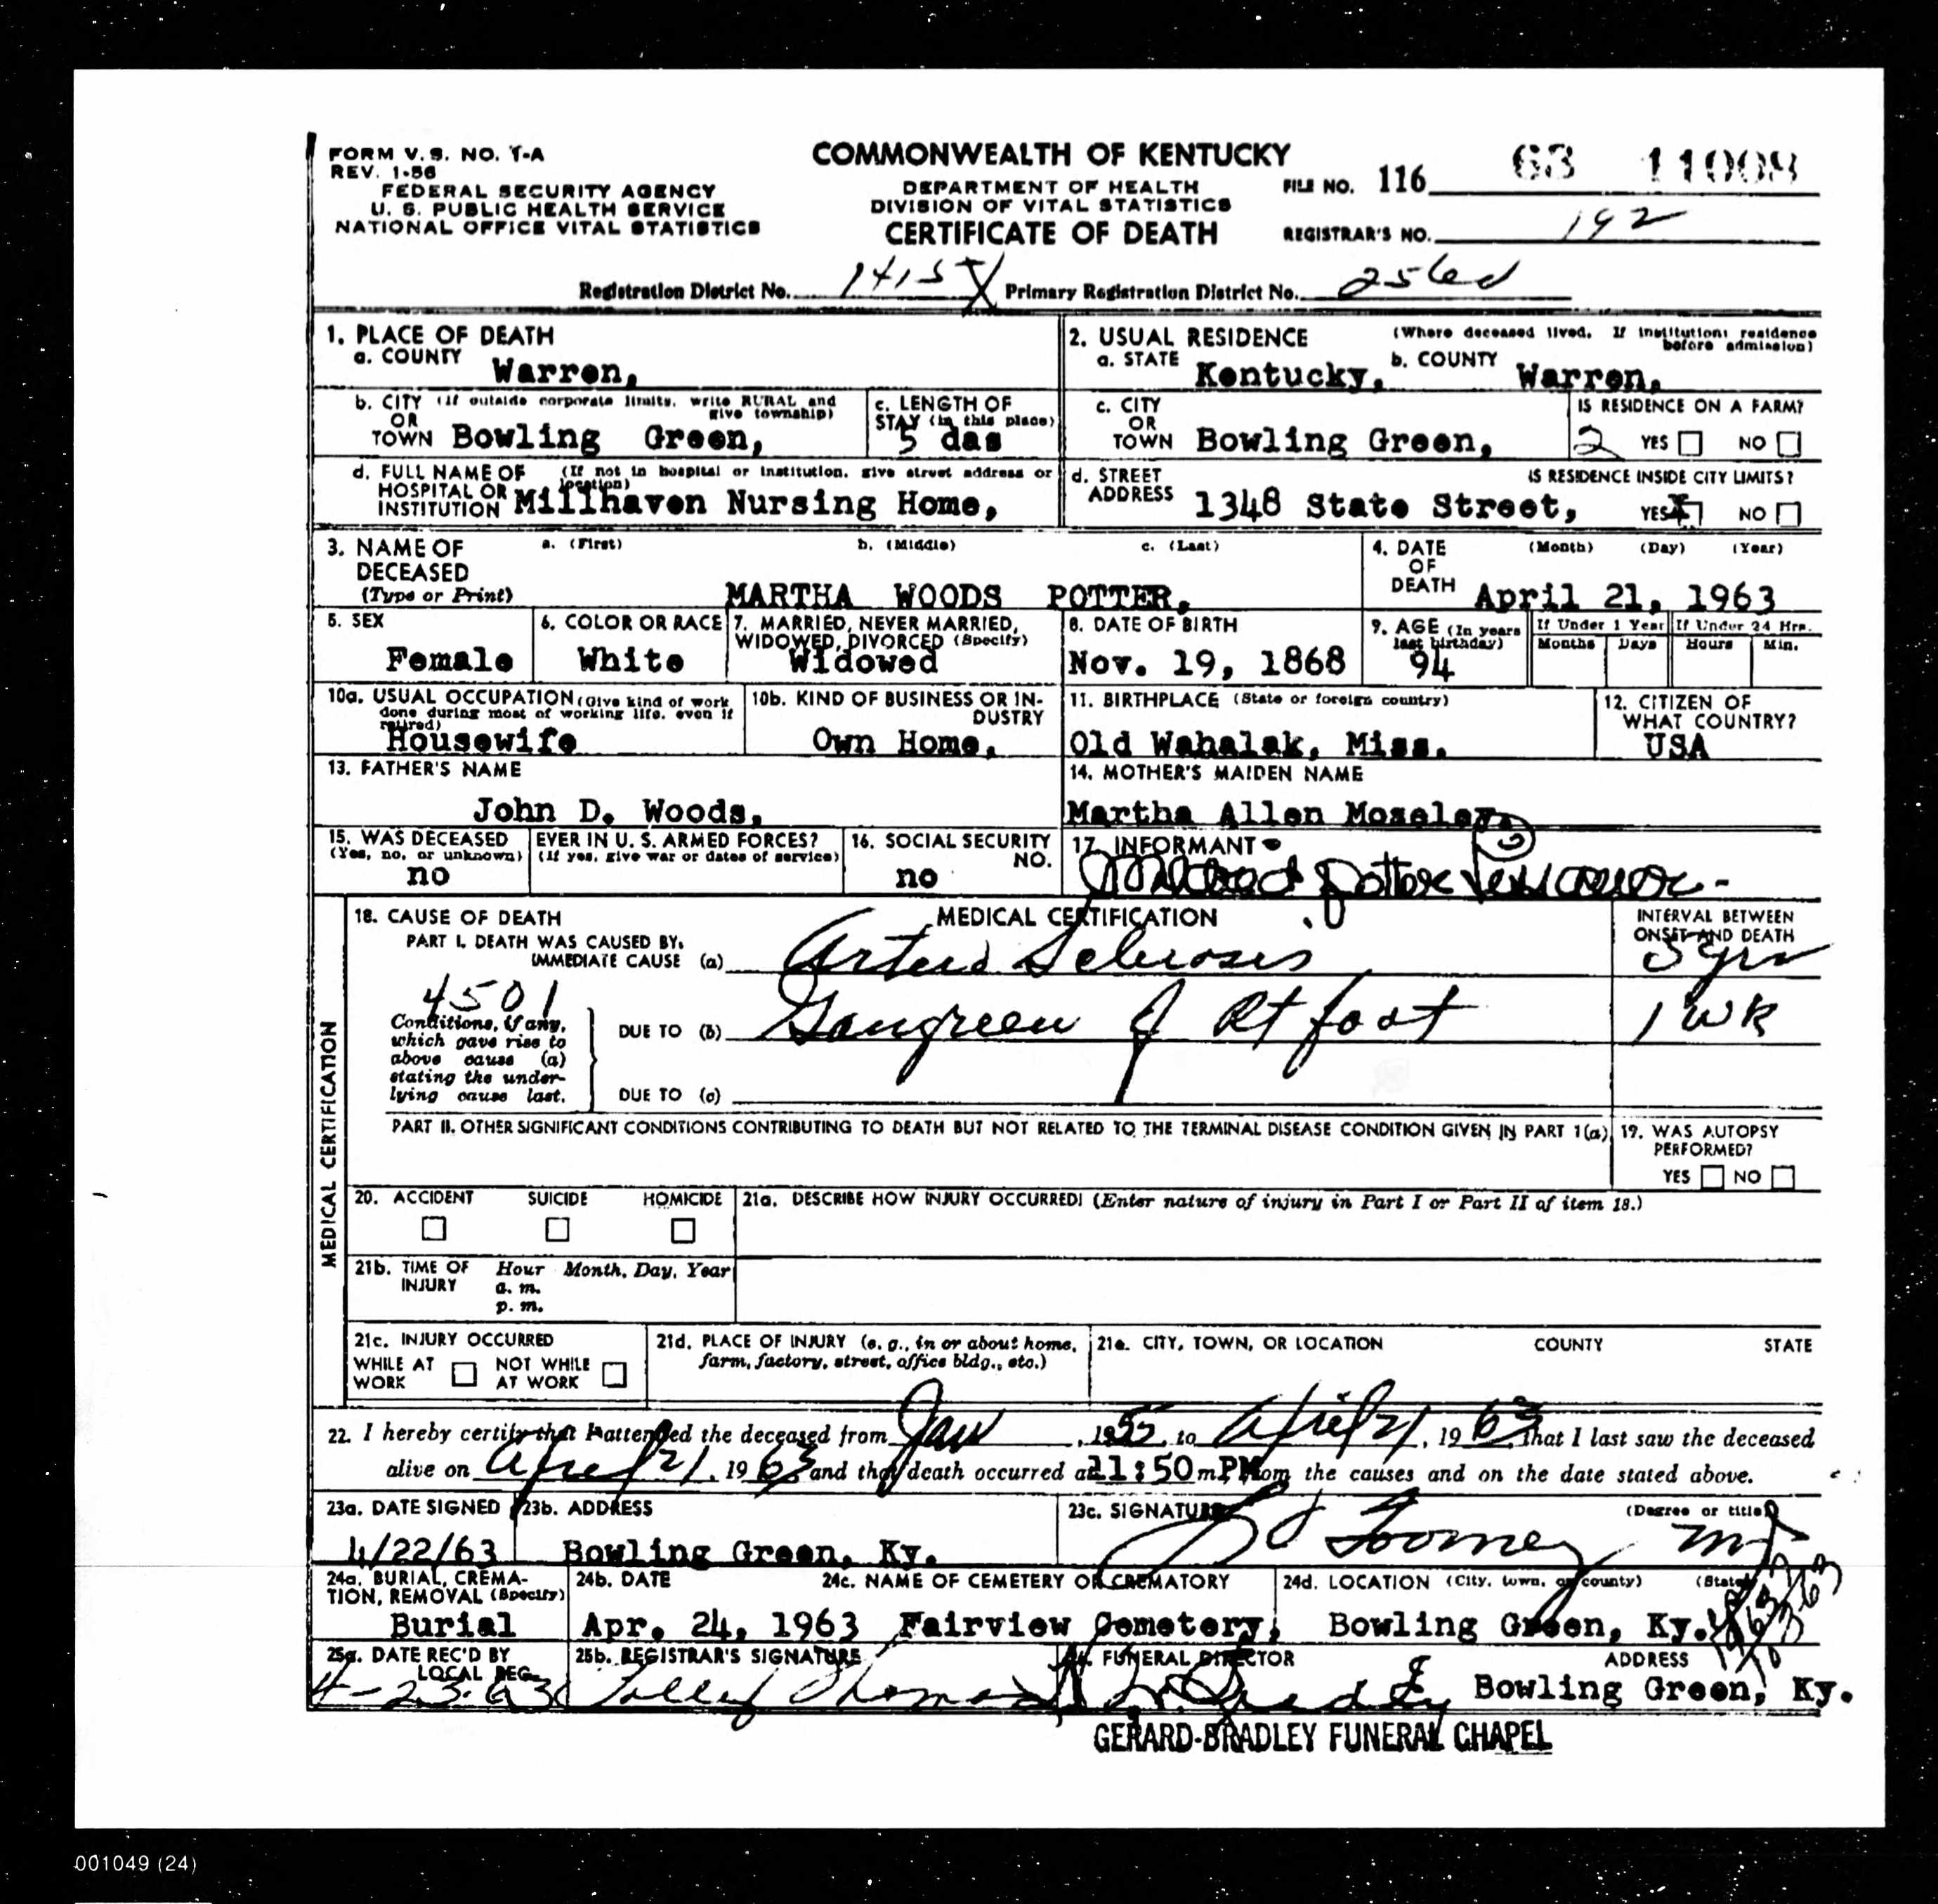 FORM V. S. NO. 1-A
REV. 1-56
FEDERAL SECURITY AGENCY
U. S. PUBLIC HEALTH SERVICE
NATIONAL OFFICE VITAL STATISTICS
COMMONWEALTH OF KENTUCKY
DEPARTMENT OF HEALTH
DIVISION OF VITAL STATISTICS
CERTIFICATE OF DEATH
FILE NO. 116 63 11009
REGISTRAR'S NO. 192
Registration District No. 1415 Primary Registration District No.
1. PLACE OF DEATH
a. COUNTY Warren,
2. USUAL RESIDENCE (Where deceased lived. If institution: residence before admission)
a. STATE Kentucky, b. COUNTY Warren,
b. CITY (If outside corporate limits, write RURAL and give township)
OR
TOWN Bowling Green,
c. LENGTH OF
STAY (in this place)
5 das
c. CITY
OR
TOWN Bowling Green,
IS RESIDENCE ON A FARM?
2 YES NO
d. FULL NAME OF (If not in hospital or institution, give street address or location)
HOSPITAL OR
INSTITUTION Millhaven Nursing Home,
d. STREET
ADDRESS 1348 State Street,
IS RESIDENCE INSIDE CITY LIMITS?
YES X NO
3. NAME OF
DECEASED
(Type or Print)
a. (First) b. (Middle) c. (Last)
MARTHA WOODS POTTER,
4. DATE
OF
DEATH
(Month) (Day) (Year)
April 21, 1963
5. SEX
Female
6. COLOR OR RACE
White
7. MARRIED, NEVER MARRIED,
WIDOWED, DIVORCED (Specify)
Widowed
8. DATE OF BIRTH
Nov. 19, 1868
9. AGE (In years last birthday)
94
If Under 1 Year
Months Days
If Under 24 Hrs.
Hours Min.
10a. USUAL OCCUPATION (Give kind of work done during most of working life, even if retired)
Housewife
10b. KIND OF BUSINESS OR INDUSTRY
Own Home,
11. BIRTHPLACE (State or foreign country)
Old Wahalak, Miss.
12. CITIZEN OF
WHAT COUNTRY?
USA
13. FATHER'S NAME
John D. Woods,
14. MOTHER'S MAIDEN NAME
Martha Allen Moseley,
15. WAS DECEASED EVER IN U. S. ARMED FORCES?
(Yes, no, or unknown) (If yes, give war or dates of service)
no
16. SOCIAL SECURITY
NO.
no
17. INFORMANT
Potter
MEDICAL CERTIFICATION
18. CAUSE OF DEATH
MEDICAL CERTIFICATION
INTERVAL BETWEEN
ONSET AND DEATH
PART I. DEATH WAS CAUSED BY:
IMMEDIATE CAUSE (a) Arterio Sclerosis 5 yrs
4501
Conditions, if any,
which gave rise to
above cause (a)
stating the under-
lying cause last.
DUE TO (b) Gangreen of Rt foot 1 wk
DUE TO (c)
PART II. OTHER SIGNIFICANT CONDITIONS CONTRIBUTING TO DEATH BUT NOT RELATED TO THE TERMINAL DISEASE CONDITION GIVEN IN PART I(a)
19. WAS AUTOPSY
PERFORMED?
YES NO
20. ACCIDENT SUICIDE HOMICIDE
21a. DESCRIBE HOW INJURY OCCURRED! (Enter nature of injury in Part I or Part II of item 18.)
21b. TIME OF
INJURY
Hour Month, Day, Year
a. m.
p. m.
21c. INJURY OCCURRED
WHILE AT
WORK
NOT WHILE
AT WORK
21d. PLACE OF INJURY (e. g., in or about home,
farm, factory, street, office bldg., etc.)
21e. CITY, TOWN, OR LOCATION COUNTY STATE
22. I hereby certify that I attended the deceased from Jan, 1955, to April 21, 1963, that I last saw the deceased
alive on April 21, 1963, and that death occurred at 11:50 m PM from the causes and on the date stated above.
23a. DATE SIGNED
4/22/63
23b. ADDRESS
Bowling Green, Ky.
23c. SIGNATURE (Degree or title)
Toomey MD
24a. BURIAL, CREMA-
TION, REMOVAL (Specify)
Burial
24b. DATE
Apr. 24, 1963
24c. NAME OF CEMETERY OR CREMATORY
Fairview Cemetery,
24d. LOCATION (City, town, or county) (State)
Bowling Green, Ky.
25a. DATE REC'D BY
LOCAL REG.
4-23-63
25b. REGISTRAR'S SIGNATURE
Thomas
26. FUNERAL DIRECTOR ADDRESS
Bowling Green, Ky.
GERARD-BRADLEY FUNERAL CHAPEL
001049 (24)